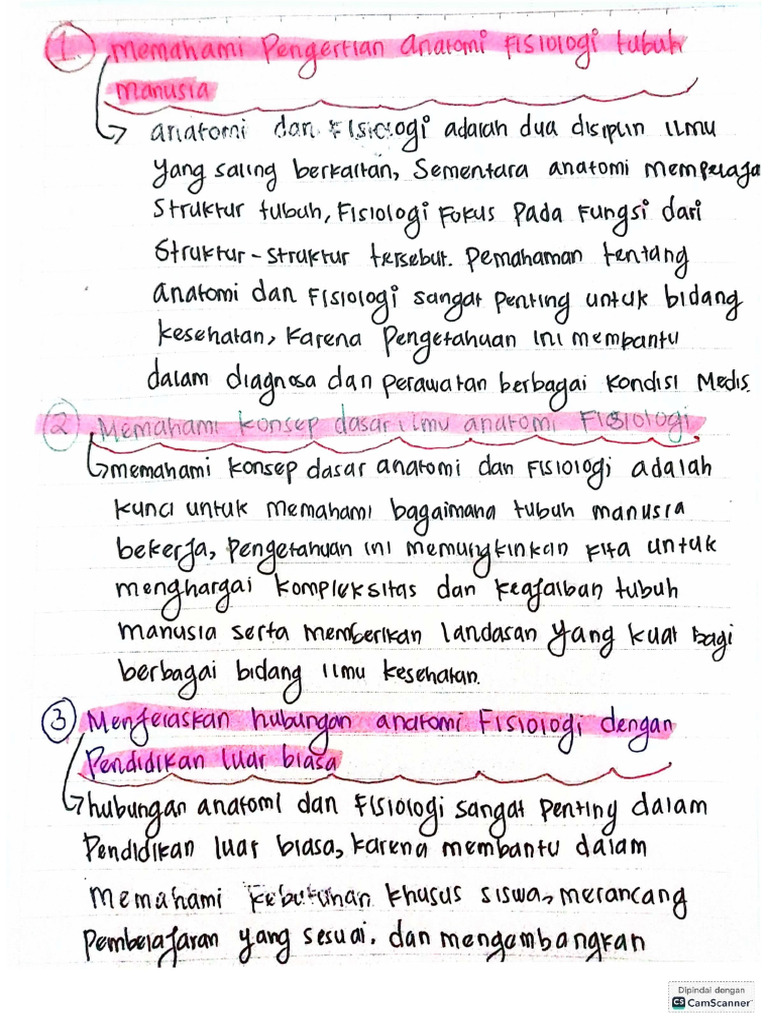 1. Memahami Pengertian anatomi Fisiologi tubuh
Manusia
anatomi dan Fisiologi adalah dua disiplin ilmu
yang saling berkaitan, Sementara anatomi mempelaja
Struktur tubuh, Fisiologi Fokus Pada Fungsi dari
Struktur-struktur tersebut. Pemahaman tentang
anatomi dan Fisiologi sangat penting untuk bidang
kesehatan, Karena Pengetahuan ini membantu
dalam diagnosa dan perawatan berbagai kondisi Medis.
2 Memahami konsep dasar ilmu anatomi Fisiologi
memahami konsep dasar anatomi dan Fisiologi adalah
kunci untuk memahami bagaimana tubuh manusia
bekerja, Pengetahuan ini memungkinkan kita untuk
menghargai kompleksitas dan keajaiban tubuh
manusia serta memberikan landasan yang kuat bagi
berbagai bidang ilmu kesehatan.
3 Menjelaskan hubungan anatomi Fisiologi dengan
Pendidikan luar biasa
hubungan anatomi dan Fisiologi sangat penting dalam
Pendidikan luar biasa, karena membantu dalam
memahami kebutuhan khusus siswa, merancang
Pembelajaran yang sesuai. dan mengembangkan
Dipindai dengan
CS CamScanner